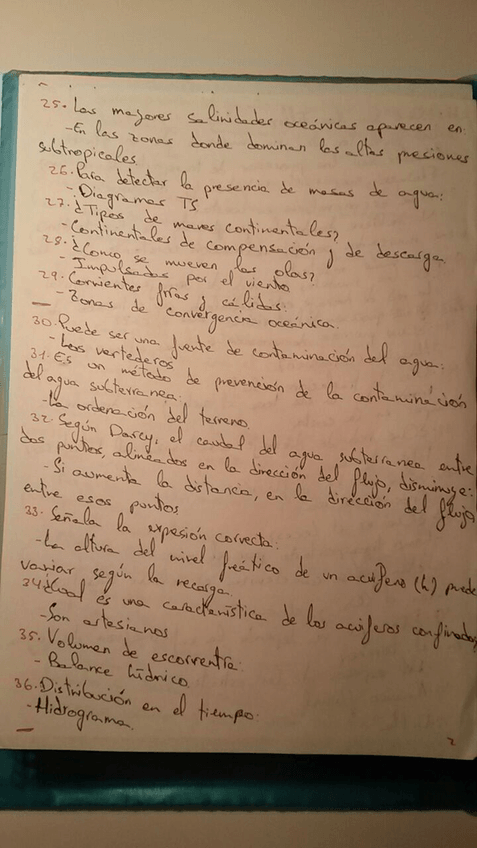 25. Las mayores salinidades oceánicas aparecen en:
- En las zonas donde dominan las altas presiones
subtropicales
26. Para detectar la presencia de masas de agua:
- Diagramas TS
27. ¿Tipos de mares continentales?
- Continentales de compensación y de descarga
28. ¿Como se mueven las olas?
- Impulsadas por el viento
29. Corrientes frías y cálidas:
- Zonas de convergencia oceánica.
30. Puede ser una fuente de contaminación del agua:
- Los vertederos
31. Es un método de prevención de la contaminación
del agua subterranea:
- La ordenación del terreno
32. Según Darcy, el caudal del agua subterranea entre
dos puntos, alineados en la dirección del flujo, disminuye:
- Si aumenta la distancia, en la dirección del flujo,
entre esos puntos
33. Señala la expresión correcta:
- La altura del nivel freático de un acuífero (h) puede
variar según la recarga.
34 ¿Cual es una característica de los acuíferos confinados?
- Son artesianos
35. Volumen de escorrentía:
- Balance hídrico
36. Distribución en el tiempo:
- Hidrograma.
2